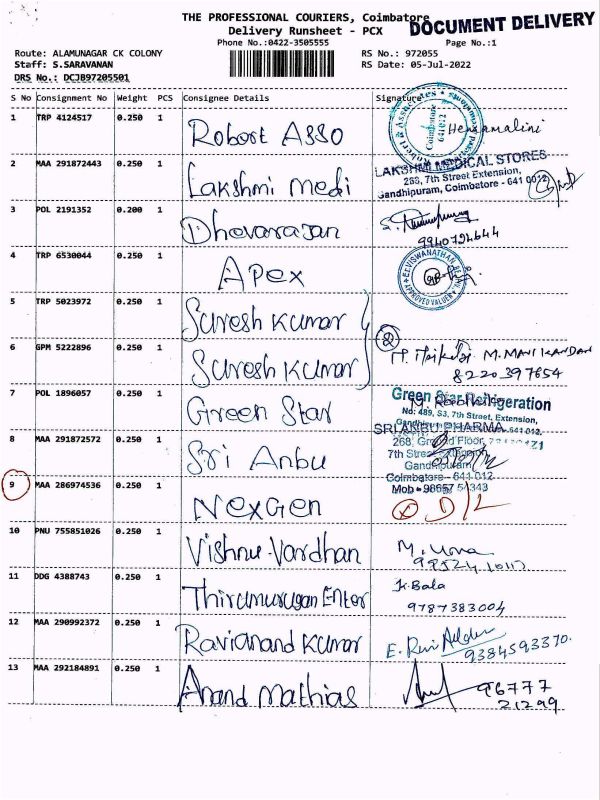 THE PROFESSIONAL COURIERS, Coimbatore
Delivery Runsheet - PCX
DOCUMENT DELIVERY
Phone No.:0422-3505555
Page No.:1
Route: ALAMUNAGAR CK COLONY
RS No.: 972055
Staff: S.SARAVANAN
RS Date: 05-Jul-2022
DRS No.: DCJB97205501
S No Consignment No Weight PCS Consignee Details Signature
1 TRP 4124517 0.250 1 Robert Asso Hemamalini
Coimbatore
641 012
2 MAA 291872443 0.250 1 Lakshmi Medi
LAKSHMI MEDICAL STORES
268, 7th Street Extension,
Gandhipuram, Coimbatore - 641 0012
3 POL 2191352 0.200 1 Dhevarajan
9940794644
4 TRP 6530044 0.250 1 Apex
APPROVED VALUER
5 TRP 5023972 0.250 1 Suresh Kumar
6 GPM 5222896 0.250 1 Suresh Kumar M. MANIKANDAN
8220397654
7 POL 1896057 0.250 1 Green Star
Green Star Refrigeration
No: 489, S3, 7th Street, Extension,
8 MAA 291872572 0.250 1 Sri Anbu
SRI ANBU PHARMA
268, Ground Floor,
7th Street Extension,
Gandhipuram,
Coimbatore - 641 012
Mob - 98657 54343
9 MAA 286974536 0.250 1 NexGen D/L
10 PNU 755851026 0.250 1 Vishnu Vardhan M. Uma
11 DDG 4388743 0.250 1 Thirumurugan Enter K. Bala
9787383004
12 MAA 290992372 0.250 1 Ravianand Kumar
9384593370
13 MAA 292184891 0.250 1 Anand Mathias 96777
21299